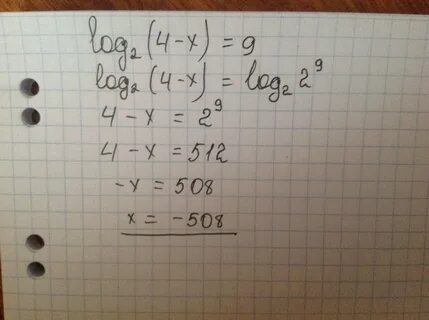 log₂(4-x) = 9
log₂(4-x) = log₂ 2⁹
4 - x = 2⁹
4 - x = 512
-x = 508
x = -508